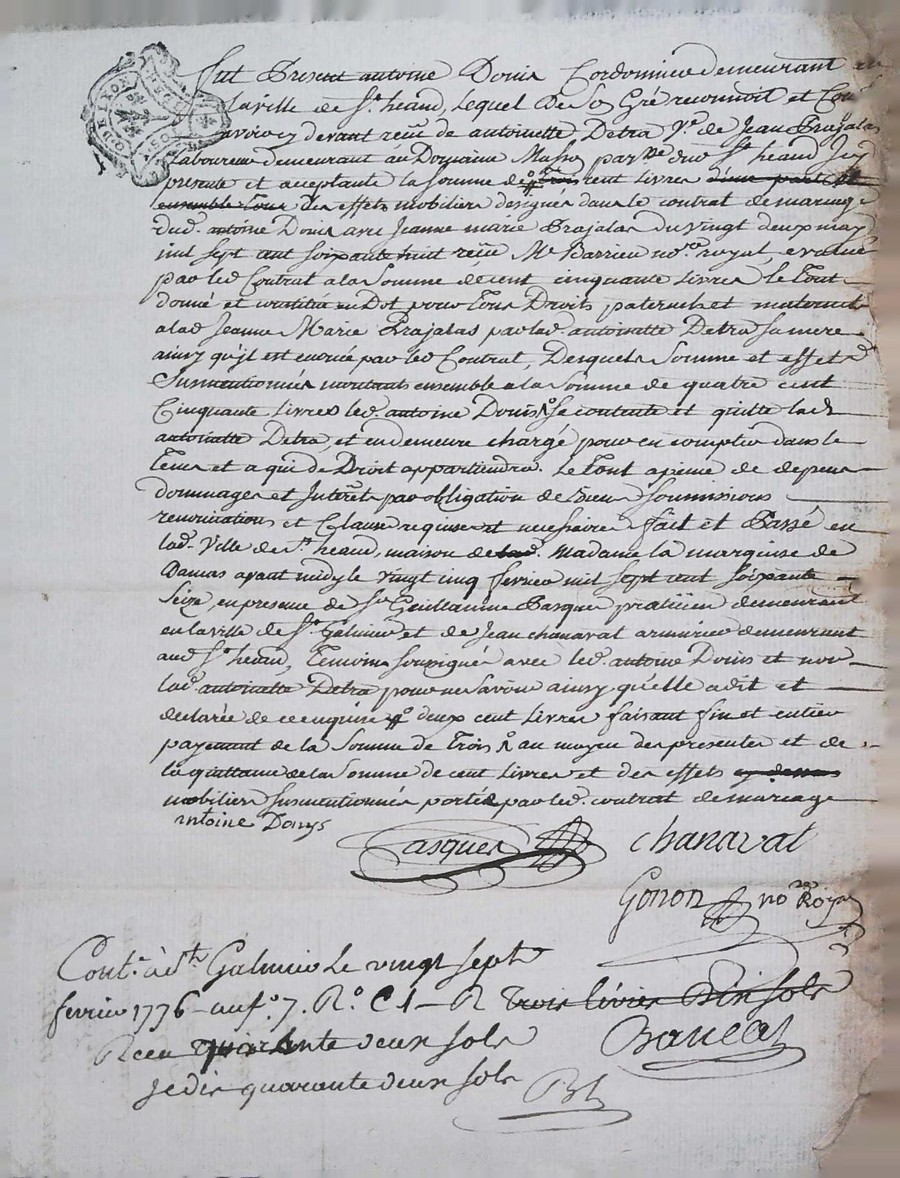 Fut Present antoine Donis Cordonnier demeurant en
la ville de St. heand, Lequel De Son Gré reconnoit et
avoir cy devant reçu de antoinette Detra Ve. de Jean Prajalas
Laboureur demeurant au Domaine parsse dud. St heand Icy
presente et acceptante la Somme de trois cent Livres d'une part et
ensemble tous des effets mobiliers designés dans le contrat de mariage
dud. antoine Donis avec Jeanne marie Prajalas du vingt deux may
mil sept cent soixante huit reçu Me Barrieu nore. royal, evalués
par led. Contrat a la Somme de cent cinquante livres le Tout
donné et constitué en Dot pour Tous Droits paternels et maternels
a lad. Jeanne Marie Prajalas par lad. antoinette Detra Sa mere
ainsy qu'il est enoncé par led. Contrat, Desquels Somme et effets
Susmentionnés montants ensemble a la Somme de quatre cent
Cinquante livres led. antoine Donis Se contente et quitte lad.
antoinette Detra, et en demeure chargé pour en compter dans le
Tems et a qui de Droit appartiendra. Le Tout a peine de depens
dommages et Interets par obligation de biens Soumissions
renonciations et Clauses requises et necessaires fait et Passé en
lad. Ville de St. heand, maison de lad. Madame la marquise de
Damas avant midy le vingt cinq fevrier mil sept cent soixante
Seize, en presence de Sr. Guillaume Pasques praticien demeurant
en la ville de St. Galmier et de Jean chanavat armurier demeurant
aud. St. heand, Temoins soussignés avec led. antoine Donis et non
lad. antoinette Detra pour ne Savoir ainsy qu'elle a dit et
declarée de ce enquise deux cent Livres faisant fin et entier
payement de la Somme de Trois au moyen des presentes et de
la quittance de la Somme de cent Livres et des effets
mobiliers Susmentionnés portés par led. contrat de mariage
antoine Donys
Pasques chanavat
Gonon nore Royal
Conté. à St. Galmier Le vingt sept
fevrier 1776 - au fo. 7. Ro. C 1 - R Trois livres Dix sols
Reçu quarante deux sols
je dis quarante deux sols